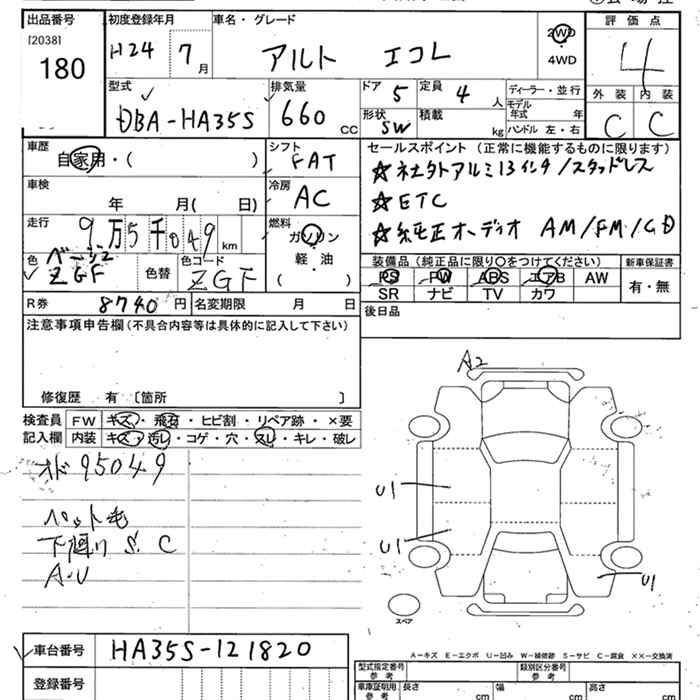 出品番号 初度登録年月 車名・グレード 評価点
[2038]
180 H24 7月 アルト エコL 2WD 4WD 4
外装 内装
型式 排気量 ドア 5 定員 4人 ディーラー・並行
DBA-HA35S 660cc 形状 SW 積載 kg モデル年式 年 C C
ハンドル 左・右
車歴 シフト セールスポイント (正常に機能するものに限ります)
自家用・( ) FAT ☆社外アルミ13インチ/スタッドレス
車検 冷房 ☆ETC
年 月( 日) AC ☆純正オーディオ AM/FM/CD
走行 9万5千049km 燃料 ガソリン・軽油 ( )
装備品 (純正品に限り○をつけてください) 新車保証書
色 ベージュ ZGF 色替 色コード ZGF PS PW ABS エアB AW 有・無
SR ナビ TV カワ
R券 8740円 名変期限 月 日 後日品
注意事項申告欄(不具合内容等は具体的に記入して下さい)
修復歴 有 〔箇所 〕
A2
検査員 FW キズ・飛石・ヒビ割・リペア跡・×要
記入欄 内装 キズ・汚れ・コゲ・穴・スレ・キレ・破レ
オド95049
U1
ペット毛
下廻り S.C
U1
A.U
U1
スペア
車台番号 HA35S-121820
A-キズ E-エクボ U-凹み W-補修跡 S-サビ C-腐食 XX-交換済
型式指定番号 参考 類別区分番号 参考
登録番号 車庫証明用 参考 長さ cm 幅 cm 高さ cm